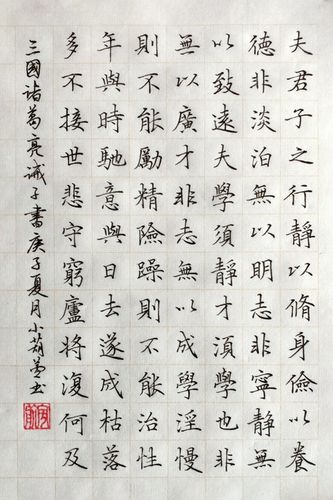 夫君子之行靜以脩身儉以養
德非淡泊無以明志非寧靜無
以致遠夫學須靜才湏學也非
無以廣才非志無以成學淫慢
則不能勵精險躁則不能治性
年與時馳意與日去遂成枯落
多不接世悲守窮廬將復何及
三國諸葛亮誡子書庚子夏月小葫芦书